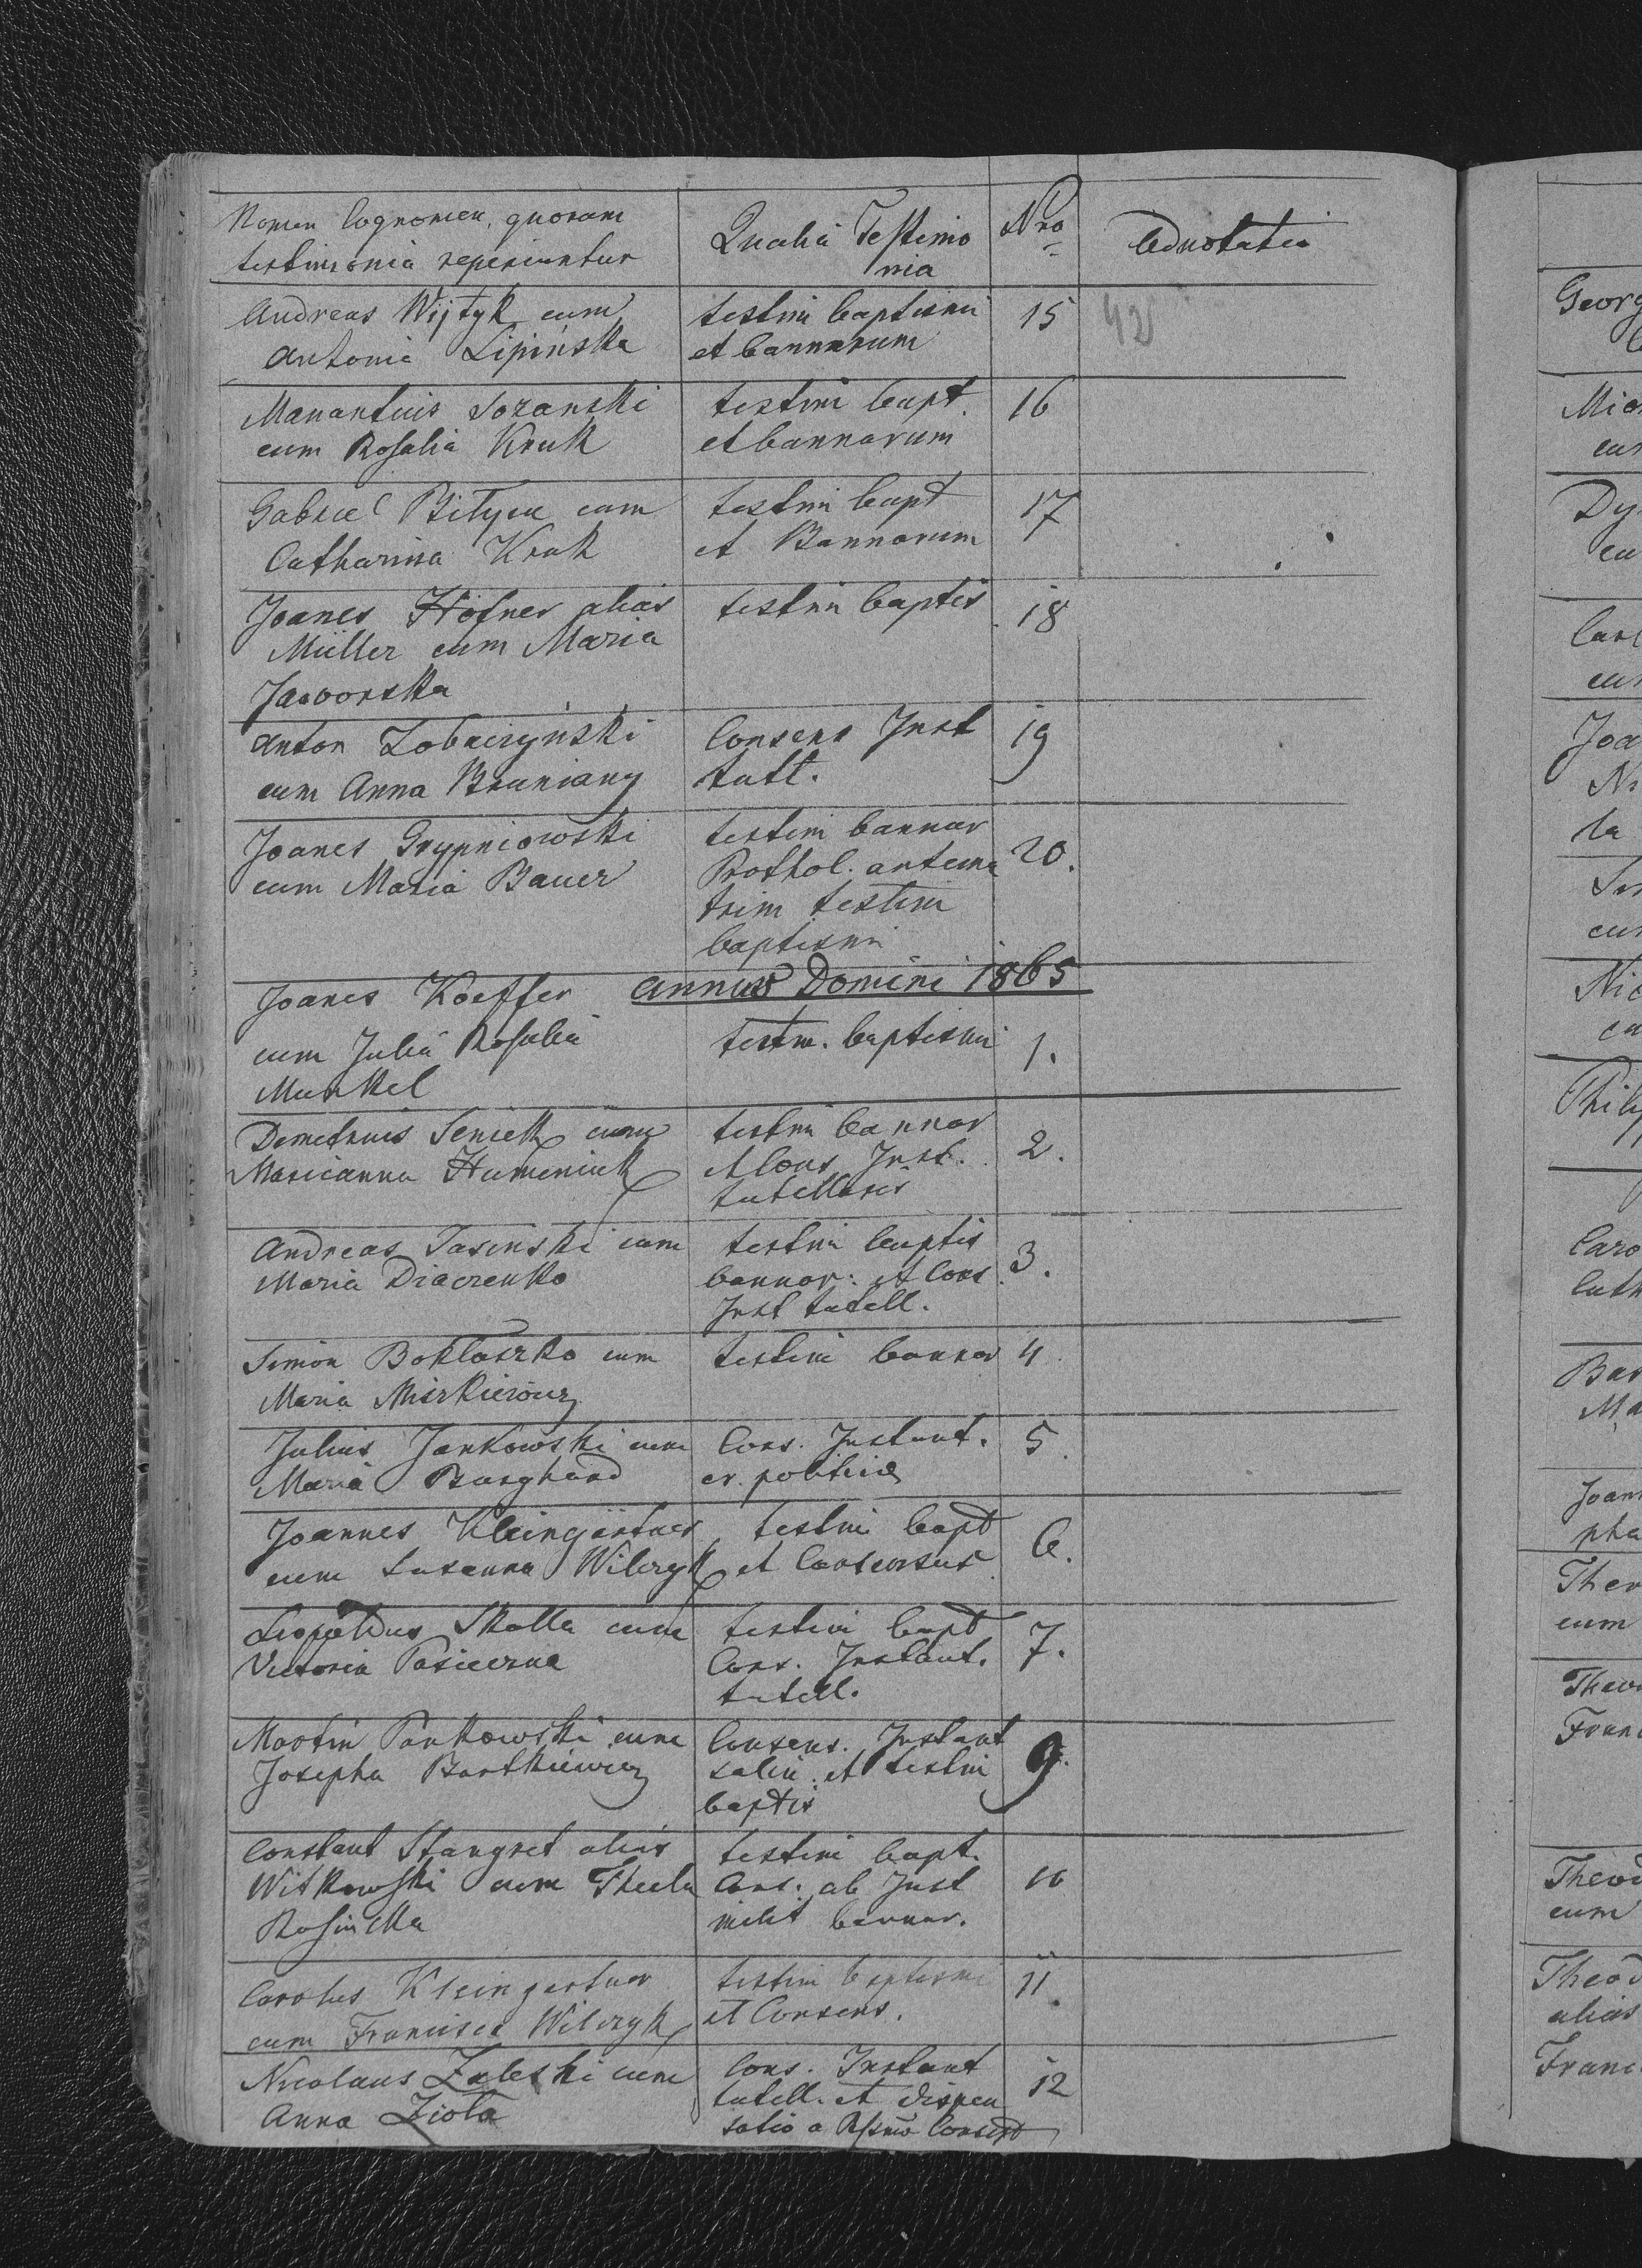 Nomen Cognomen, quorum
testimonia reperiuntur
Qualia Testimo
nia
Nro
Adnotatio
Andreas Wijtyk cum
Antonia Lipińska
testim baptismi
et bannorum
15
42
cum Rosalia Kruk
testim bapt.
et bannorum
16
Gabriel Bilycu cum
Catharina Kruk
testim bapt
et Bannorum
17
Joanes Höfner alias
Müller cum Maria
Jaworska
testim baptis
18
Anton
cum Anna Bruniany
Consens Inst
tutt.
19
Joanes Grypniowski
cum Maria Bauer
testim bannor
Prothol. antema
trim testim
baptismi
20.
Annus Domini 1865
Joanes Koeffer
cum Julia Rosalia
Munkel
testm. baptismi
1.
Demetrius Seniek cum
Marianna Humeniuk
testim bannor
et Cons Inst.
tutellaris
2.
Andreas Jasinski cum
Maria Diaczenko
testim baptis
bannor: et Cons
Inst tutell.
3.
Simon Boktoszko cum
Maria Mickiewicz
testim bannor
4.
Julius Jankowski cum
Maria Burghard
Cons. Instant.
5.
Joannes Kleingärtner
cum Susanna Wilczyk
testim bapt
et Consensus
6.
Leopoldus Skalla cum
Victoria Pasieczna
testim bapt
Cons. Instant.
tutell.
7.
Martin Pankowski cum
Josepha Bartkiewicz
Consens. Instant
salin. et testim
baptis
9.
Constant Stangret alias
Witkowski cum Thecla
testim bapt.
Cons. ab Inst
milit bannor.
10
Carolus Kleingertner
cum Francisca Wilczyk
testim baptismi
et Consens.
11.
Nicolaus Zaleski cum
Anna Ziola
Cons. Instant
tutell. et dispen
satio a Rssmo Consist
12
Georg
Mic
cu
Dy
cu
Car
cu
Joa
la
cu
Nic
cu
Phily
Caro
Cath
Bas
Ma
Joan
pha
Theo
cum
Theo
Franc
Theod
cum
Theod
alias
Franc